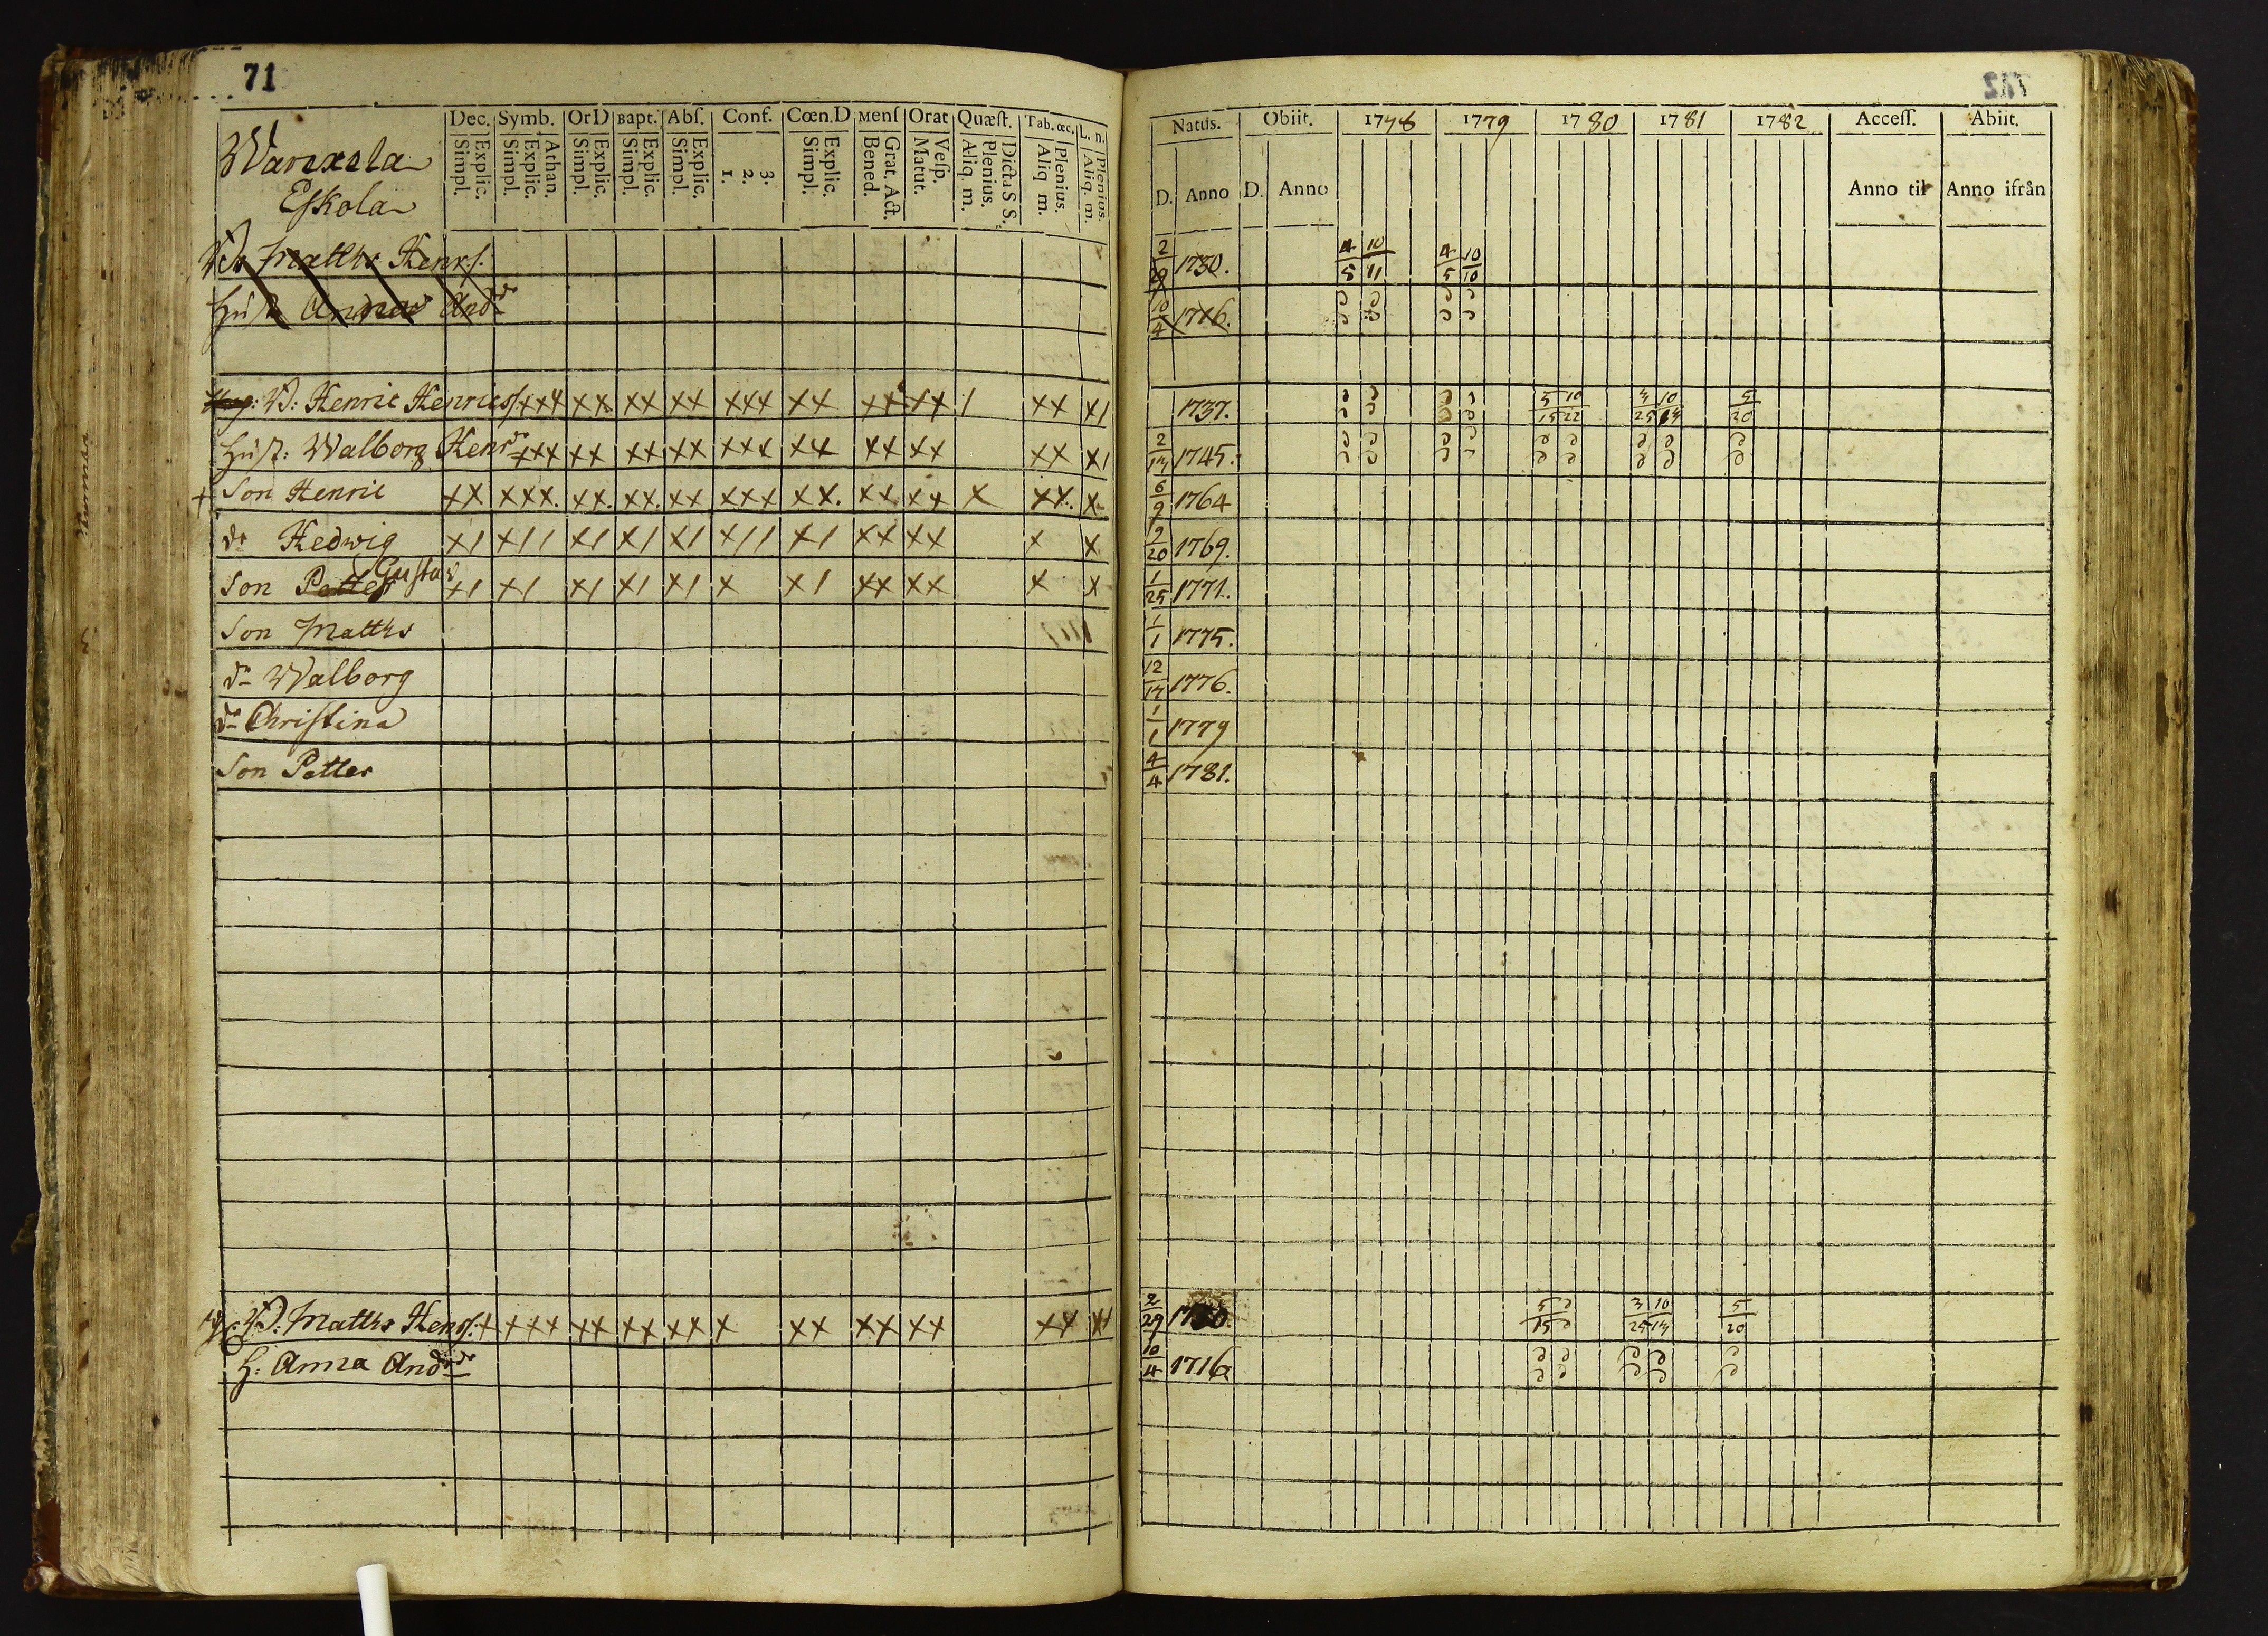 71
Dec. Symb. OrD Bapt. Abſ. Conf. Cœn.D Menſ Orat Quæſt. Tab. œc. L. n.
Explic. Simpl. Athan. Explic. Simpl. Explic. Simpl. Explic. Simpl. Explic. Simpl. 3. 2. 1. Explic. Simpl. Grat. Act. Bened. Veſp. Matut. Dicta S S. Plenius. Aliq. m. Plenius. Aliq m. Plenius. Aliq. m.
Eſkola
Matths Henrſ.
Huſt Anna Andr
W: Henric Henricſ xxx xx xx xx xxx xx xx xx 1 xx x1
Huſt: Walborg Henr xxx xx xx xx xxx xx xx xx xx x1
+ Son Henric xx xxx. xx. xx. xx xxx xx. xx xx x xx. x
dr Hedwig x1 x11 x1 x1 x1 x11 x1 xx xx x x
Gustav
Son Petter x1 x1 x1 x1 x1 x x1 xx xx x x
Son Matths
dr Walborg
dr Christina
Son Petter
Matths Henrſ: x xxx xx xx xx x xx xx xx xx
H: Anna Andr
Natus. Obiit. 1778 1779 1780 1781 1782 Acceſſ. Abiit.
D. Anno D. Anno Anno til Anno ifrån
2/29 1730. 4/5 10/11 4/5 10/10
10/4 1716.
1737. 5/15 10/22 3/25 10/13 5/20
2/13 1745.
6/9 1764
9/20 1769.
1/25 1771.
1/1 1775.
12/13 1776.
1/1 1779
4/4 1781.
2/29 5/15 3/25 10/13 5/20
10/4 1716